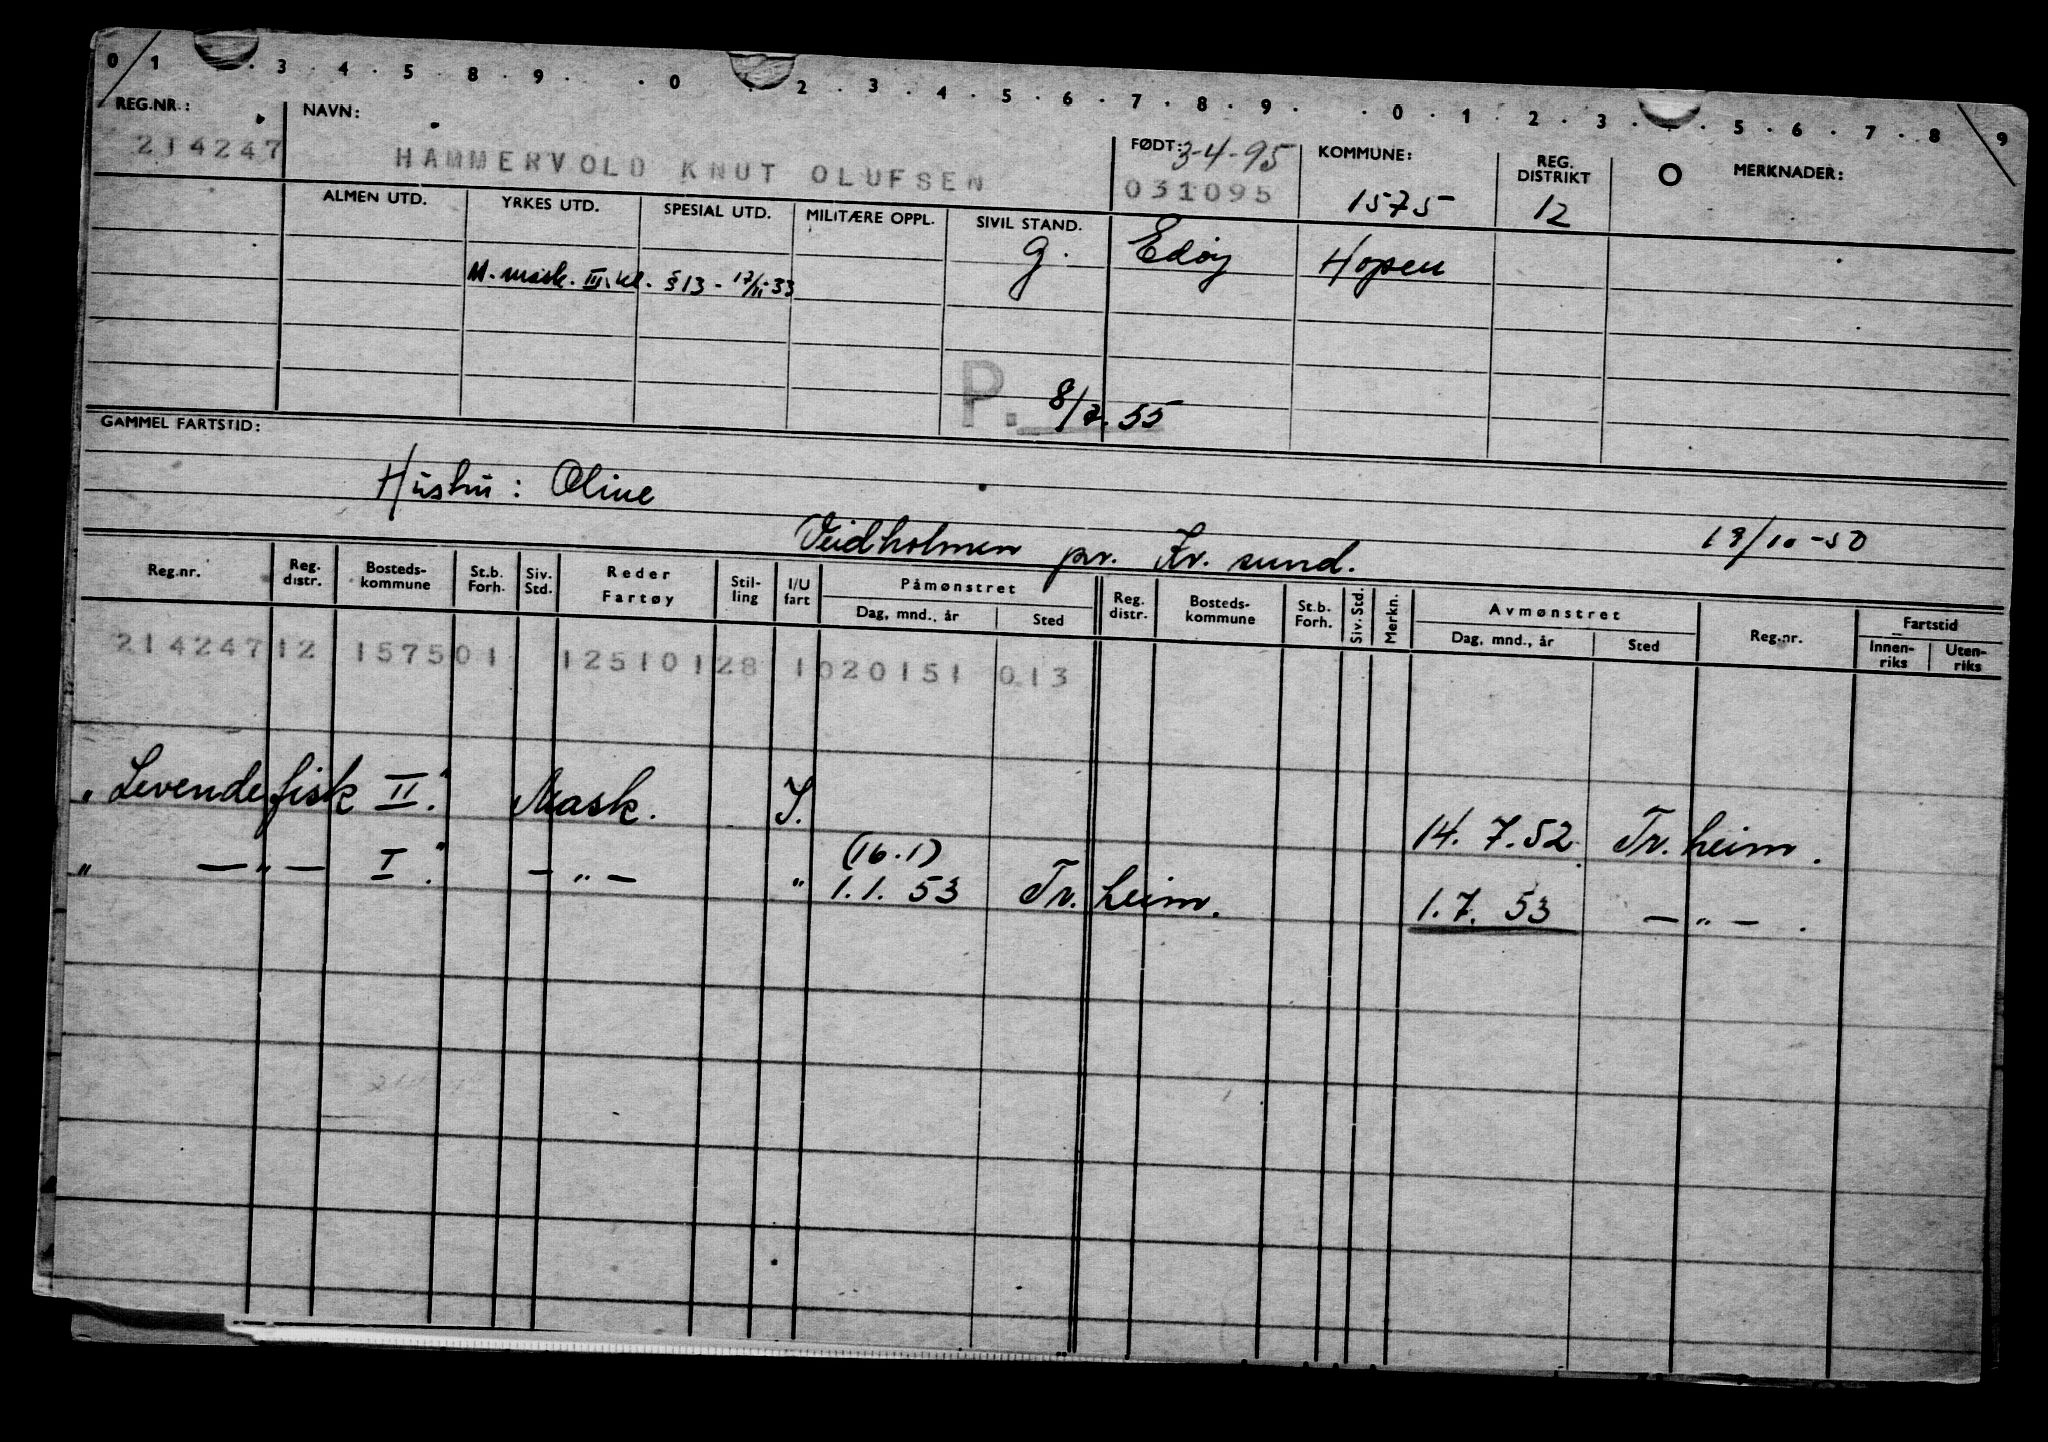 0 1 3 4 5 8 9 0 2 3 4 5 6 7 8 9 0 1 2 3 5 6 7 8 9
REG.NR.: NAVN: FØDT: 3-4-95 KOMMUNE: REG. DISTRIKT MERKNADER:
214247 HAMMERVOLD KNUT OLUFSEN 031095 1575 12
ALMEN UTD. YRKES UTD. SPESIAL UTD. MILITÆRE OPPL. SIVIL STAND.
g. Edøy Hopen
M. mask. III. kl. §13 - 17/11-33
P. 8/2.55
GAMMEL FARTSTID:
Hustru: Oline
Veidholmen pr. Kr. sund. 19/10-50
Reg.nr. Reg. distr. Bosteds-kommune St.b. Forh. Siv. Std. Reder Fartøy Stil-ling I/U fart Påmønstret Dag, mnd., år Sted Reg. distr. Bosteds-kommune St.b. Forh. Siv. Std. Merkn. Avmønstret Dag, mnd., år Sted Reg.nr. Fartstid Innen-riks Uten-riks
214247 12 1575 01 12510128 1020151 013
"Levendefisk II." Mask. I. 14.7.52. Tr.heim.
" — " — I." — " — " (16.1) 1.1.53 Tr.heim. 1.7.53 — " — .